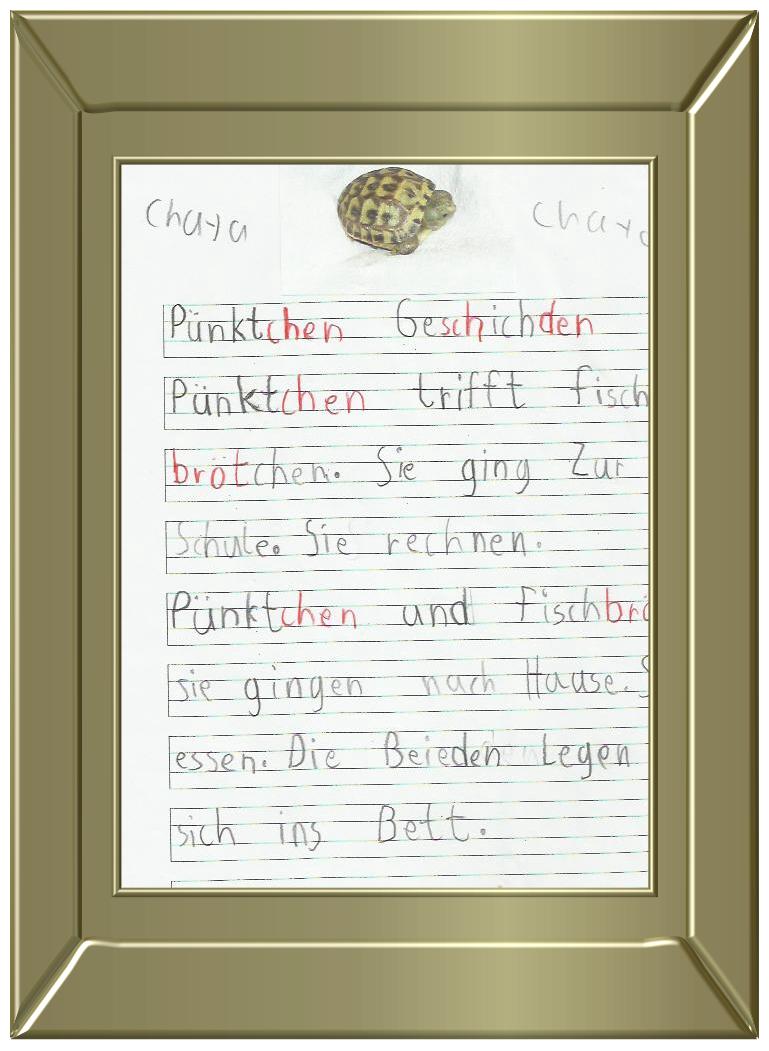 Chaya Chaya
Pünktchen Geschichden
Pünktchen trifft fisch
brötchen. Sie ging Zur
Schule. Sie rechnen.
Pünktchen und fischbrö
sie gingen nach Hause. S
essen. Die Beieden Legen
sich ins Bett.